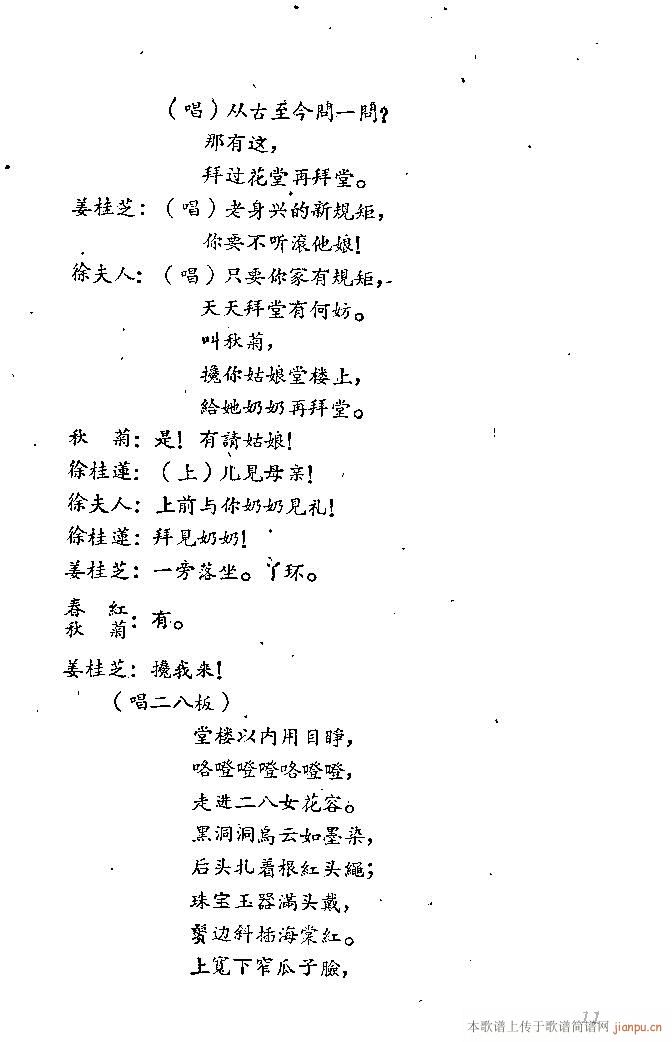 （唱）从古至今問一問？
那有这，
拜过花堂再拜堂。
姜桂芝：（唱）老身兴的新規矩，
你要不听滚他娘！
徐夫人：（唱）只要你家有規矩，
天天拜堂有何妨。
叫秋菊，
搀你姑娘堂楼上，
給她奶奶再拜堂。
秋　菊：是！有請姑娘！
徐桂蓮：（上）儿見母亲！
徐夫人：上前与你奶奶見礼！
徐桂蓮：拜見奶奶！
姜桂芝：一旁落坐。丫环。
春　紅
秋　菊：有。
姜桂芝：搀我来！
（唱二八板）
堂楼以内用目睁，
咯噔噔噔咯噔噔，
走进二八女花容。
黑洞洞烏云如墨染，
后头扎着根紅头繩；
珠宝玉器滿头戴，
鬓边斜插海棠红。
上寬下窄瓜子臉，
11
本歌谱上传于歌谱简谱网
jianpu.cn